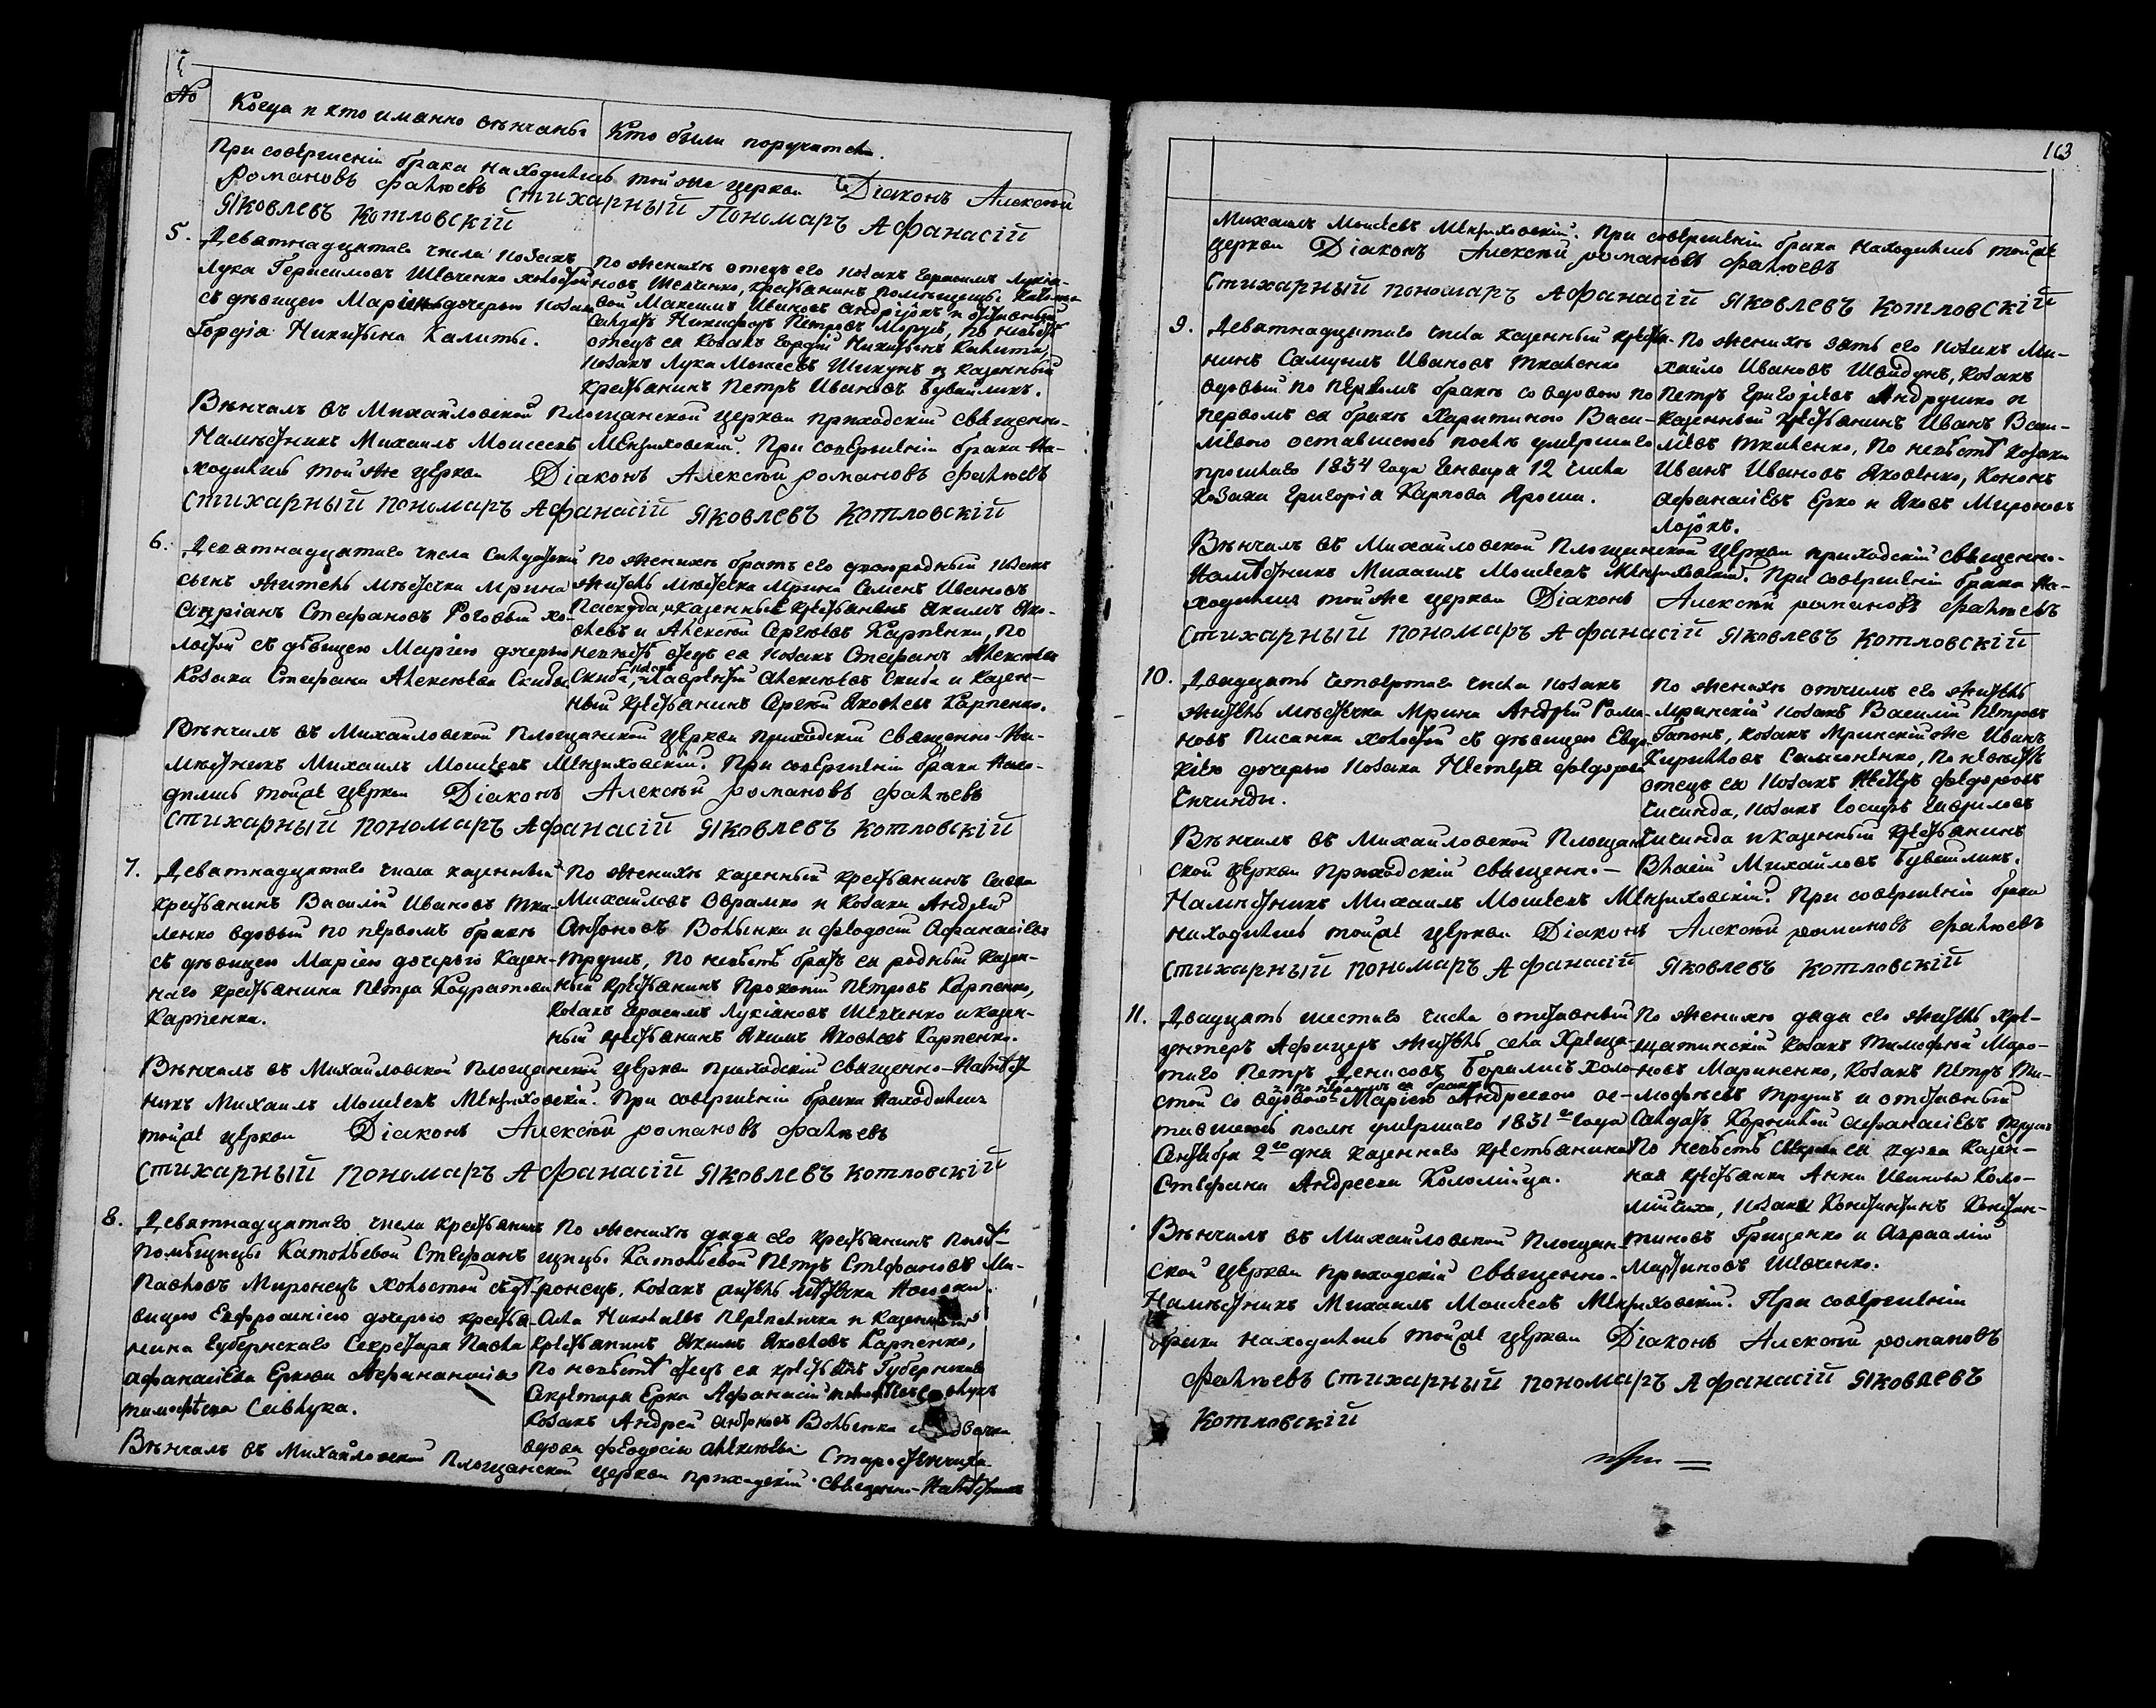 №
Когда и кто именно вѣнчаны
Кто были поручители.
При совершеніи брака находились той же церкви Діаконъ Алексѣй
Романовъ Фалѣевъ Стихарный Пономарь Афанасій
Яковлевъ Котловскій
5. Девятнадцатаго числа козакъ
Лука Герасимовъ Шевченко холостой
съ дѣвицею Маріею дочерью козака
Гордія Никитина Калиты.
По женихѣ отецъ его козакъ Герасимъ Лукіа-
новъ Шевченко, крестьянинъ помѣщицы
Максимъ Ивановъ и отставный
Салдатъ Никифоръ Петровъ по невѣстѣ
отецъ ея козакъ Гордій Никитинъ Калита,
козакъ Лука Моисеевъ Шикунъ и казенный
крестьянинъ Петръ Ивановъ Бувайликъ.
Вѣнчалъ въ Михайловской Площанской церкви приходскій священно-
Намѣстникъ Михаилъ Моисеевъ Менжиховскій. При совершеніи брака на-
ходились той же церкви Діаконъ Алексѣй Романовъ Фалѣевъ
Стихарный пономарь Афанасій Яковлевъ Котловскій
6. Девятнадцатаго числа Салдатскій
сынъ житель мѣстечка Мрина
Андріанъ Стефановъ Роговый хо-
лостой съ дѣвицею Маріею дочерью
Козака Стефана Алексѣева Скибы.
По женихѣ братъ его двоюродный козакъ
житель мѣстечка Мрина Семенъ Ивановъ
Паскуда, казенные крестьяне Акимъ Яко-
влевъ и Алексѣй Сергѣевъ Карпенки, по
невѣстѣ отецъ ея козакъ Стефанъ Алексѣевъ
Скиба, козакъ Лаврентій Алексѣевъ Скиба и казен-
ный крестьянинъ Сергѣй Яковлевъ Карпенко.
Вѣнчалъ въ Михайловской Площанской церкви приходскій священно-На-
мѣстникъ Михаилъ Моисеевъ Менжиховскій. При совершеніи брака нахо-
дились тойже церкви Діаконъ Алексѣй Романовъ Фалѣевъ
Стихарный пономарь Афанасій Яковлевъ Котловскій
7. Девятнадцатаго числа казенный
крестьянинъ Василій Ивановъ Тка-
ленко вдовый по первомъ бракѣ
съ дѣвицею Маріею дочерью казен-
наго крестьянина Петра Кондратова
Карпенка.
По женихѣ казенный крестьянинъ Савва
Михайловъ Оврамко и козаки Андрей
Антоновъ Волынка и Феодосій Афанасіевъ
Трушъ, по невѣстѣ братъ ея родный казен-
ный крестьянинъ Прокопій Петровъ Карпенко,
козакъ Герасимъ Лукіановъ Шевченко и казен-
ный крестьянинъ Акимъ Яковлевъ Карпенко.
Вѣнчалъ въ Михайловской Площанской церкви приходскій священно-Намѣст
никъ Михаилъ Моисеевъ Менжиховскій. При совершеніи брака находились
тойже церкви Діаконъ Алексѣй Романовъ Фалѣевъ
Стихарный пономарь Афанасій Яковлевъ Котловскій
8. Девятнадцатаго числа крестьянинъ
помѣщицы Стефанъ
Павловъ Миронецъ холостой съ дѣ-
вицею Евфросиніею дочерью крестья-
нина Губернскаго Секретаря Павла
Афанасіева Ерка
Тимофѣева Савчука.
По женихѣ дядя его крестьянинъ помѣ-
щицы Петръ Стефановъ Ми-
ронецъ, козакъ житель мѣстечка Носовки
и казенный
крестьянинъ Акимъ Яковлевъ Карпенко,
по невѣстѣ отецъ ея крестьянинъ Губернскаго
Секретаря Ерка Афанасій
козакъ Андрей Антоновъ Волынка и
вдова Феодосія Алексѣева
Вѣнчалъ въ Михайловской Площанской церкви приходскій священно-Намѣстникъ
163
Михаилъ Моисеевъ Менжиховскій. При совершеніи брака находились тойже
церкви Діаконъ Алексѣй Романовъ Фалѣевъ
Стихарный пономарь Афанасій Яковлевъ Котловскій
9. Девятнадцатаго числа казенный крестья-
нинъ Самуилъ Ивановъ Ткаленко
вдовый по первомъ бракѣ со вдовою по
первомъ ея бракѣ Харитиною Васи-
левою оставшеюся послѣ умершаго
прошлаго 1834 года Генваря 12 числа
козака Григорія Карпова Яроша.
По женихѣ зять его козакъ Ми-
хайло Ивановъ Шайдунъ, козакъ
Петръ Григоріевъ Андрушко и
казенный крестьянинъ Иванъ Васи-
левъ Ткаленко, по невѣстѣ козаки
Иванъ Ивановъ Яковенко, Кононъ
Афанасіевъ Ерко и Яковъ Мироновъ
Вѣнчалъ въ Михайловской Площанской церкви приходскій священно-
Намѣстникъ Михаилъ Моисеевъ Менжиховскій. При совершеніи брака на-
ходились той же церкви Діаконъ Алексѣй Романовъ Фалѣевъ
Стихарный пономарь Афанасій Яковлевъ Котловскій
10. Двадцать четвертаго числа козакъ
житель мѣстечка Мрина Андрей Рома-
новъ Писанка холостой съ дѣвицею Евдо-
кіею дочерью козака Нестера Федорова
Чичинды.
По женихѣ отчимъ его житель
Мринскій козакъ Василій Петровъ
Гапонъ, козакъ Мринскій же Иванъ
Кириловъ Самоненко, по невѣстѣ
отецъ ея козакъ Нестеръ Федоровъ
Чичинда, козакъ Іосифъ Гавриловъ
Чичинда и казенный крестьянинъ
Власій Михайловъ Бувайликъ.
Вѣнчалъ въ Михайловской Площан-
ской церкви приходскій священно-
Намѣстникъ Михаилъ Моисеевъ Менжиховскій. При совершеніи брака
находились тойже церкви Діаконъ Алексѣй Романовъ Фалѣевъ
Стихарный пономарь Афанасій Яковлевъ Котловскій
11. Двадцать шестаго числа отставный
унтеръ Афицеръ житель села Хреща-
таго Петръ Денисовъ холо-
стой со вдовою по первомъ ея бракѣ Маріею Андреевою ос-
тавшеюся послѣ умершаго 1831го года
Октября 2го дня казеннаго крестьянина
Стефана Андреева Коломійца.
По женихѣ дядя его житель Хре-
щатинскій козакъ Тимофѣй Миро-
новъ Мариненко, козакъ Петръ Ти-
мофѣевъ Трушъ и отставный
Салдатъ Корнилій Афанасіевъ Трушъ
По невѣстѣ свекровь ея вдова казен-
ная крестьянка Анна Иванова Коло-
мійчиха, козаки Константинъ Констан-
тиновъ Грищенко и Авраамій
Мартиновъ Шевченко.
Вѣнчалъ въ Михайловской Площан-
ской церкви приходскій священно-
Намѣстникъ Михаилъ Моисеевъ Менжиховскій. При совершеніи
брака находились тойже церкви Діаконъ Алексѣй Романовъ
Фалѣевъ Стихарный пономарь Афанасій Яковлевъ
Котловскій